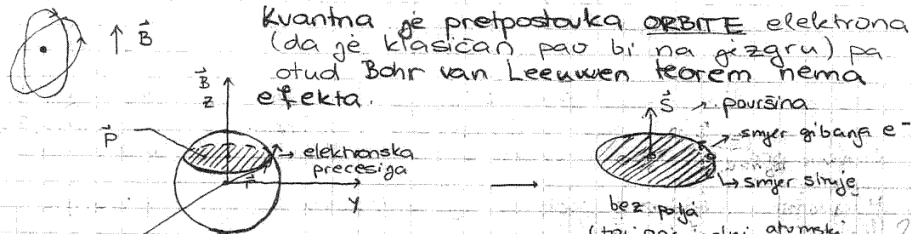 Kvantna je pretpostavka ORBITE elektrona
(da je klasičan pao bi na jezgru) pa
otud Bohr van Leeuwen teorem nema
efekta.
B⃗
B⃗
z
P⃗
elektronska
precesija
r⃗
y
S⃗
površina
smjer gibanja e⁻
smjer struje
bez polja
atomski